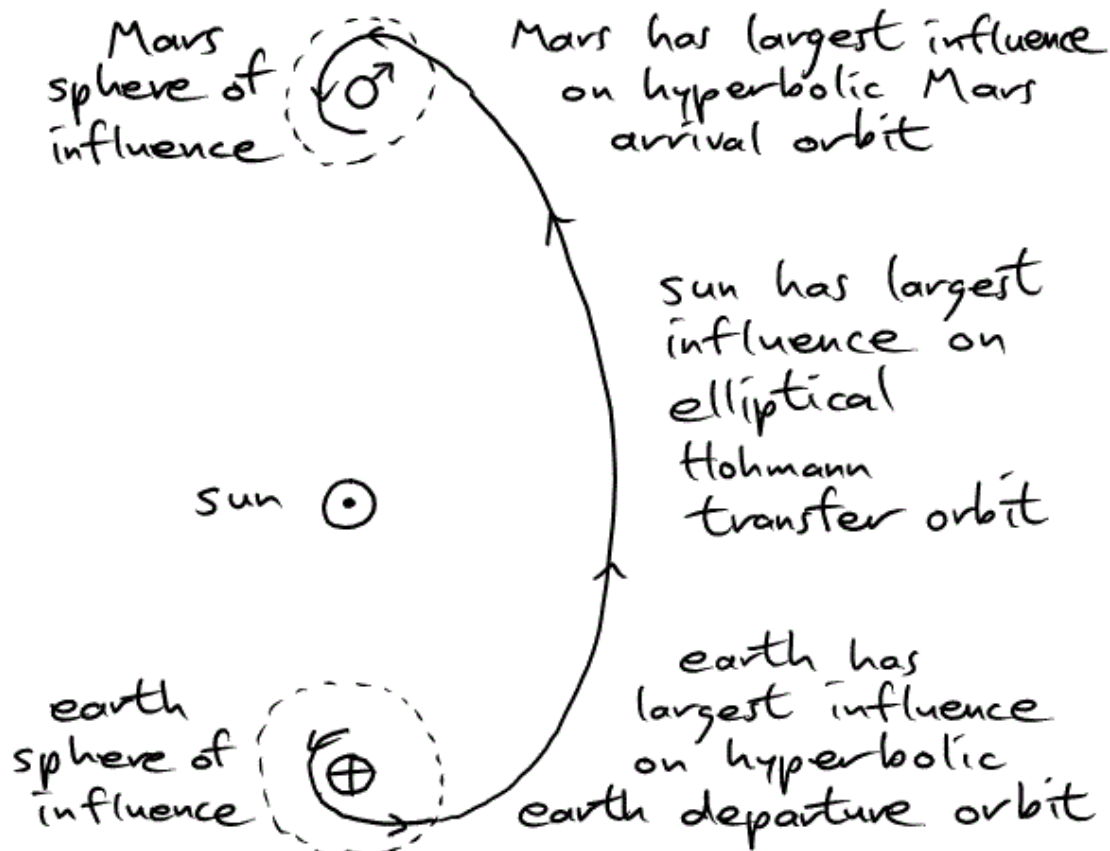 Mars
sphere of
influence
Mars has largest influence
on hyperbolic Mars
arrival orbit
sun has largest
influence on
elliptical
Hohmann
transfer orbit
sun
earth
sphere of
influence
earth has
largest influence
on hyperbolic
earth departure orbit